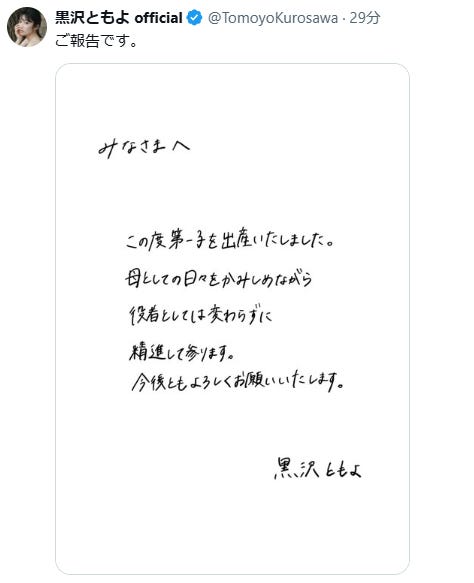 黒沢ともよ official @TomoyoKurosawa · 29分
ご報告です。
みなさまへ
この度第一子を出産いたしました。
母としての日々をかみしめながら
役者としては変わらずに
精進して参ります。
今後ともよろしくお願いいたします。
黒沢ともよ